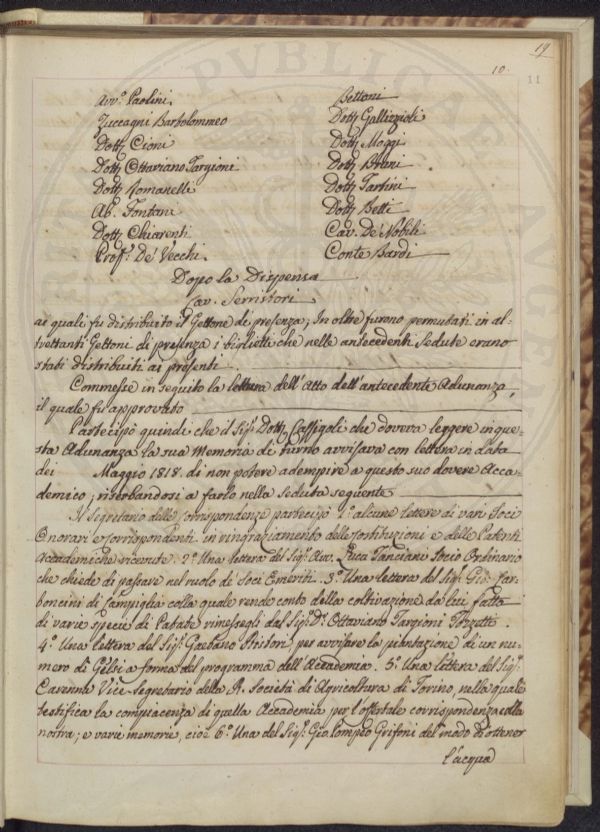 19
10.
11
Avv.º Paolini.
Zuccagni Bartolommeo
Dott. Cioni
Dott. Ottaviano Targioni
Dott. Romanelli
Ab. Fontani
Dott. Chiarenti
Prof. De' Vecchi.
Bettoni
Dott. Gallizioli
Dott. Moggi
Dott. Bruni
Dott. Tartini
Dott. Betti
Cav. De' Nobili
Conte Bardi
Dopo la Dispensa
Cav. Serristori
ai quali fu distribuito il Gettone di presenza; In oltre furono permutati in al-
trettanti Gettoni di presenza i biglietti che nelle antecedenti Sedute erano
stati distribuiti ai presenti
Commesse in seguito la lettura dell'Atto dell'antecedente Adunanza,
il quale fu approvato
Partecipò quindi che il Sig. Dott. Caffigoli che doveva leggere in que-
sta Adunanza la sua Memoria di turno avvisava con lettera in data
dei Maggio 1818. di non potere adempire a questo suo dovere Acca-
demico; riserbandosi a farlo nella Seduta seguente
Il Segretario delle Corrispondenze partecipò 1.º alcune lettere di vari Soci
Onorari e Corrispondenti in ringraziamento delle Costituzioni e delle Patenti
Accademiche ricevute. 2.º Una lettera del Sig. Avv. Luca Tanciani Socio Ordinario
che chiede di passare nel ruolo di Soci Emeriti. 3.º Una lettera del Sig. Gio. Car-
boncini di Campiglia colla quale rende conto della coltivazione da lui fatta
di varie specie di Patate rimessegli dal Sig. D. Ottaviano Targioni Tozzetti.
4.º Una lettera del Sig. Gaetano per avvisare la piantazione di un nu-
mero di Gelsi a forma del programma dell'Accademia. 5.º Una lettera del Sig.
Carenna Vice-Segretario della R. Società di Agricoltura di Torino, nella quale
testifica la compiacenza di quella Accademia per l'offertale corrispondenza colla
nostra; e varie memorie, cioè 6.º Una del Sig. Gio. Pompeo Grifoni del modo di ottener
l'acqua